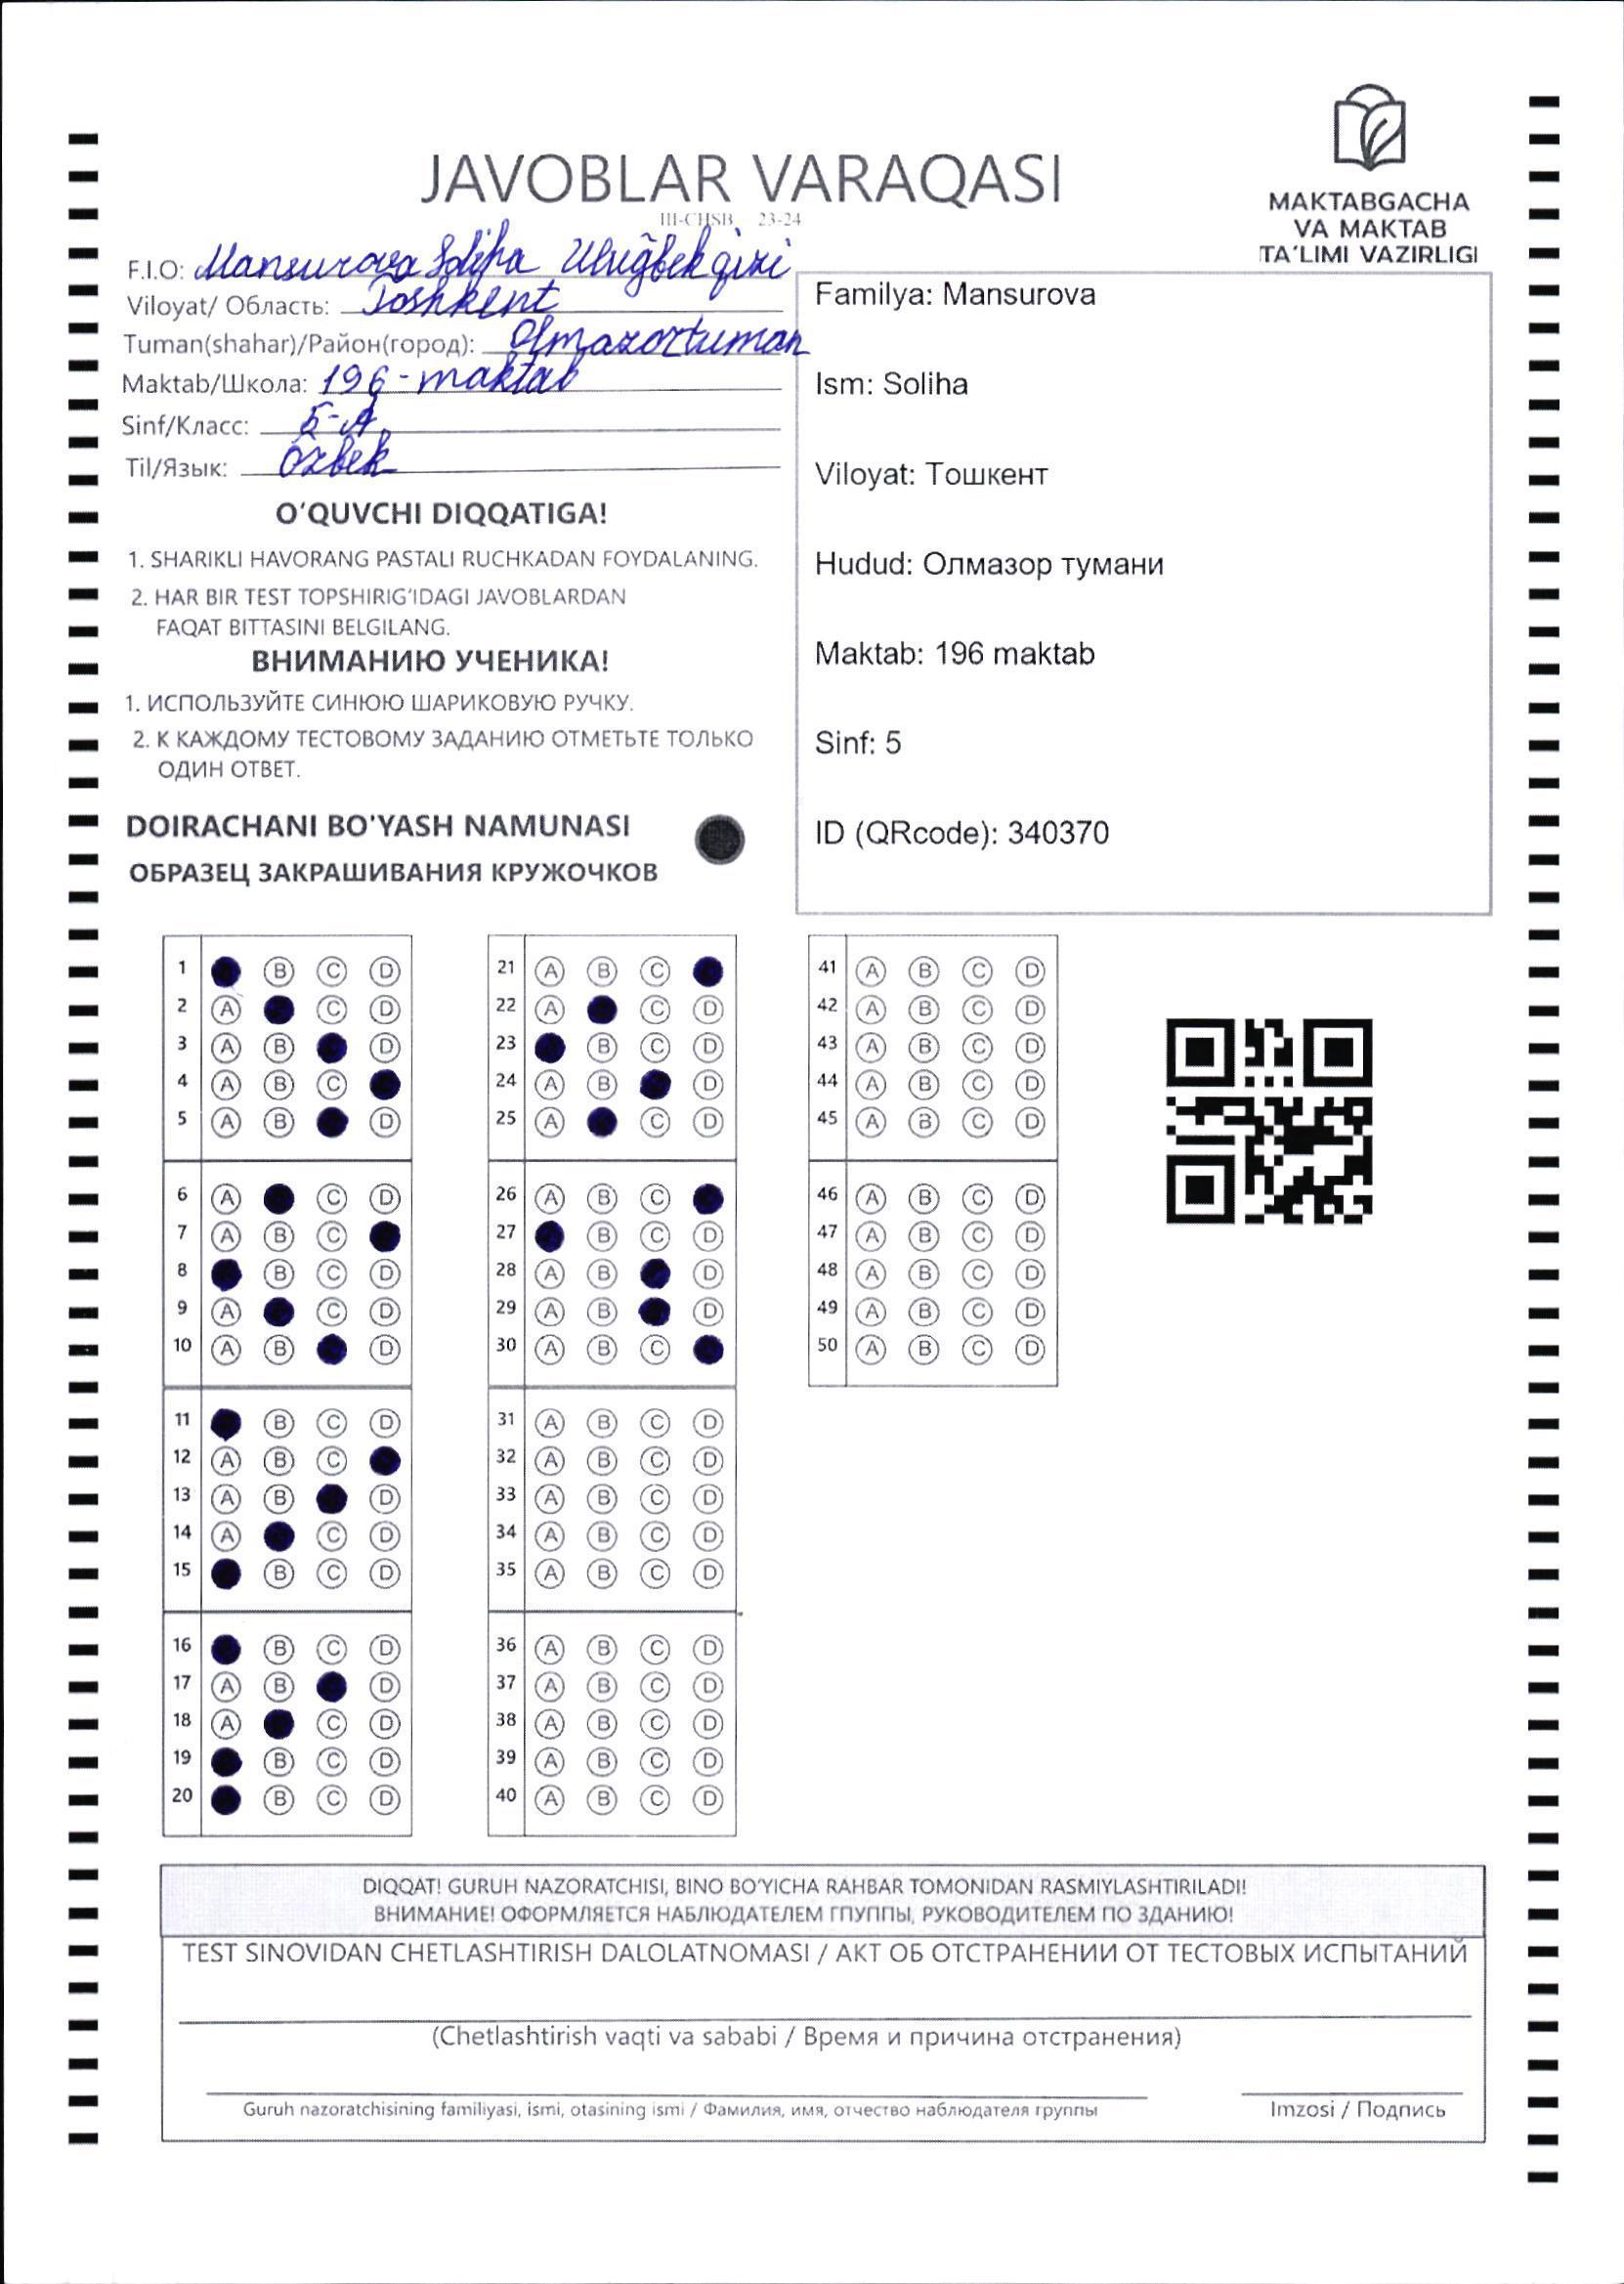 JAVOBLAR VARAQASI
III-CHSB 23-24
MAKTABGACHA
VA MAKTAB
TA'LIMI VAZIRLIGI
F.I.O: Mansurova Soliha Ulug'bek qizi
Viloyat/ Область: Toshkent
Tuman(shahar)/Район(город): Olmazor tuman
Maktab/Школа: 196-maktab
Sinf/Класс: 5-A
Til/Язык: Ozbek
O'QUVCHI DIQQATIGA!
1. SHARIKLI HAVORANG PASTALI RUCHKADAN FOYDALANING.
2. HAR BIR TEST TOPSHIRIG'IDAGI JAVOBLARDAN
FAQAT BITTASINI BELGILANG.
ВНИМАНИЮ УЧЕНИКА!
1. ИСПОЛЬЗУЙТЕ СИНЮЮ ШАРИКОВУЮ РУЧКУ.
2. К КАЖДОМУ ТЕСТОВОМУ ЗАДАНИЮ ОТМЕТЬТЕ ТОЛЬКО
ОДИН ОТВЕТ.
DOIRACHANI BO'YASH NAMUNASI
ОБРАЗЕЦ ЗАКРАШИВАНИЯ КРУЖОЧКОВ
Familya: Mansurova
Ism: Soliha
Viloyat: Тошкент
Hudud: Олмазор тумани
Maktab: 196 maktab
Sinf: 5
ID (QRcode): 340370
1 B C D
2 A C D
3 A B D
4 A B C
5 A B D
6 A C D
7 A B C
8 B C D
9 A C D
10 A B D
11 B C D
12 A B C
13 A B D
14 A C D
15 B C D
16 B C D
17 A B D
18 A C D
19 B C D
20 B C D
21 A B C
22 A C D
23 B C D
24 A B D
25 A C D
26 A B C
27 B C D
28 A B D
29 A B D
30 A B C
31 A B C D
32 A B C D
33 A B C D
34 A B C D
35 A B C D
36 A B C D
37 A B C D
38 A B C D
39 A B C D
40 A B C D
41 A B C D
42 A B C D
43 A B C D
44 A B C D
45 A B C D
46 A B C D
47 A B C D
48 A B C D
49 A B C D
50 A B C D
DIQQAT! GURUH NAZORATCHISI, BINO BO'YICHA RAHBAR TOMONIDAN RASMIYLASHTIRILADI!
ВНИМАНИЕ! ОФОРМЛЯЕТСЯ НАБЛЮДАТЕЛЕМ ГПУППЫ, РУКОВОДИТЕЛЕМ ПО ЗДАНИЮ!
TEST SINOVIDAN CHETLASHTIRISH DALOLATNOMASI / АКТ ОБ ОТСТРАНЕНИИ ОТ ТЕСТОВЫХ ИСПЫТАНИЙ
(Chetlashtirish vaqti va sababi / Время и причина отстранения)
Guruh nazoratchisining familiyasi, ismi, otasining ismi / Фамилия, имя, отчество наблюдателя группы
Imzosi / Подпись